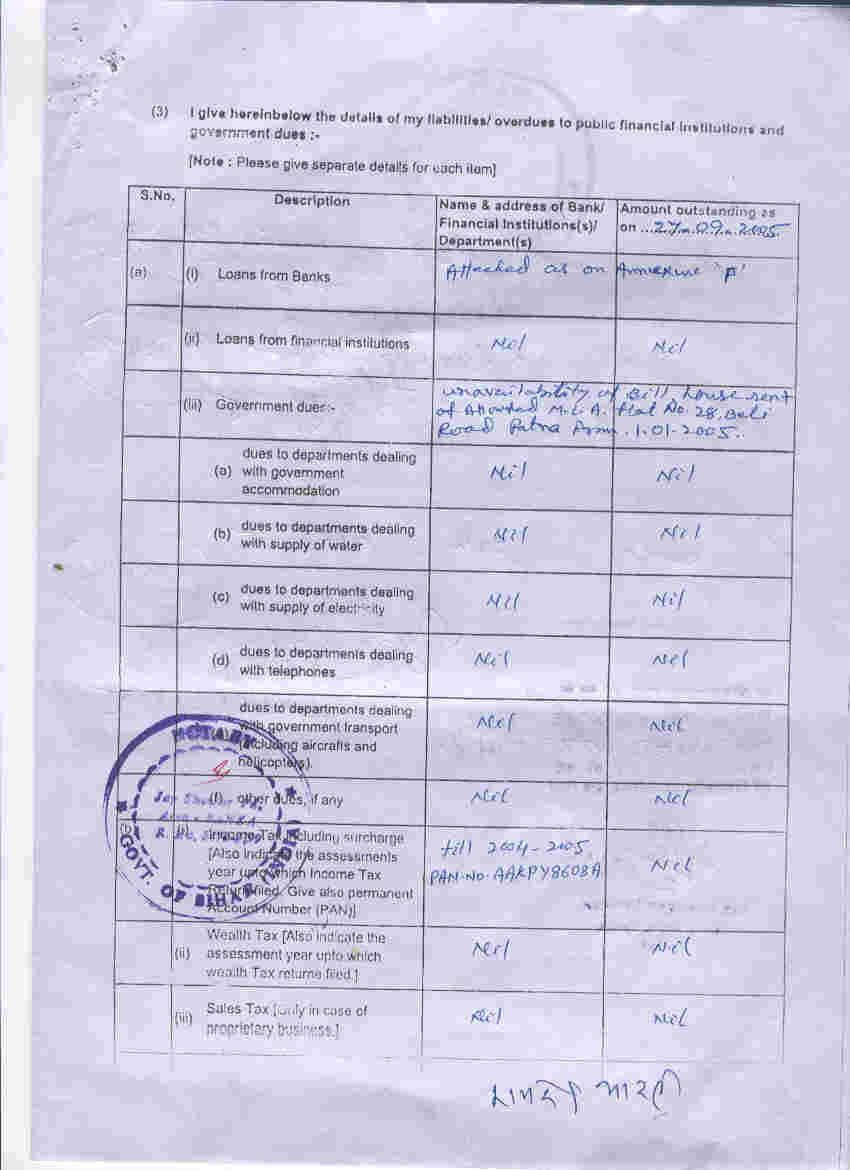 (3) I give hereinbelow the details of my liabilities/ overdues to public financial institutions and
government dues :-
[Note : Please give separate details for each item]
S.No. Description Name & address of Bank/ Amount outstanding as
Financial Institutions(s)/ on ...27.09.2005
Department(s)
(a) (i) Loans from Banks Attached as on Annexure 'F'
(ii) Loans from financial institutions Nil Nil
(iii) Government dues:- unavailability of Bill house rent
of Allowted M.L.A. flat No. 28, Beli
Road Patna from 1-01-2005.
dues to departments dealing
(a) with government Nil Nil
accommodation
(b) dues to departments dealing Nil Nil
with supply of water
(c) dues to departments dealing Nil Nil
with supply of electricity
(d) dues to departments dealing Nil Nil
with telephones
dues to departments dealing
with government transport Nil Nil
(including aircrafts and
helicopters).
(f) other dues, if any Nil Nil
Income Tax including surcharge till 2004-2005
[Also indicate the assessments PAN-No. AAKPY8608A Nil
year upto which Income Tax
Return filed. Give also permanent
Account Number (PAN)]
Wealth Tax [Also indicate the
(ii) assessment year upto which Nil Nil
wealth Tax returns filed.]
(iii) Sales Tax [only in case of Nil Nil
proprietary business.]
NOTARY
GOVT. OF BIHAR (INDIA)